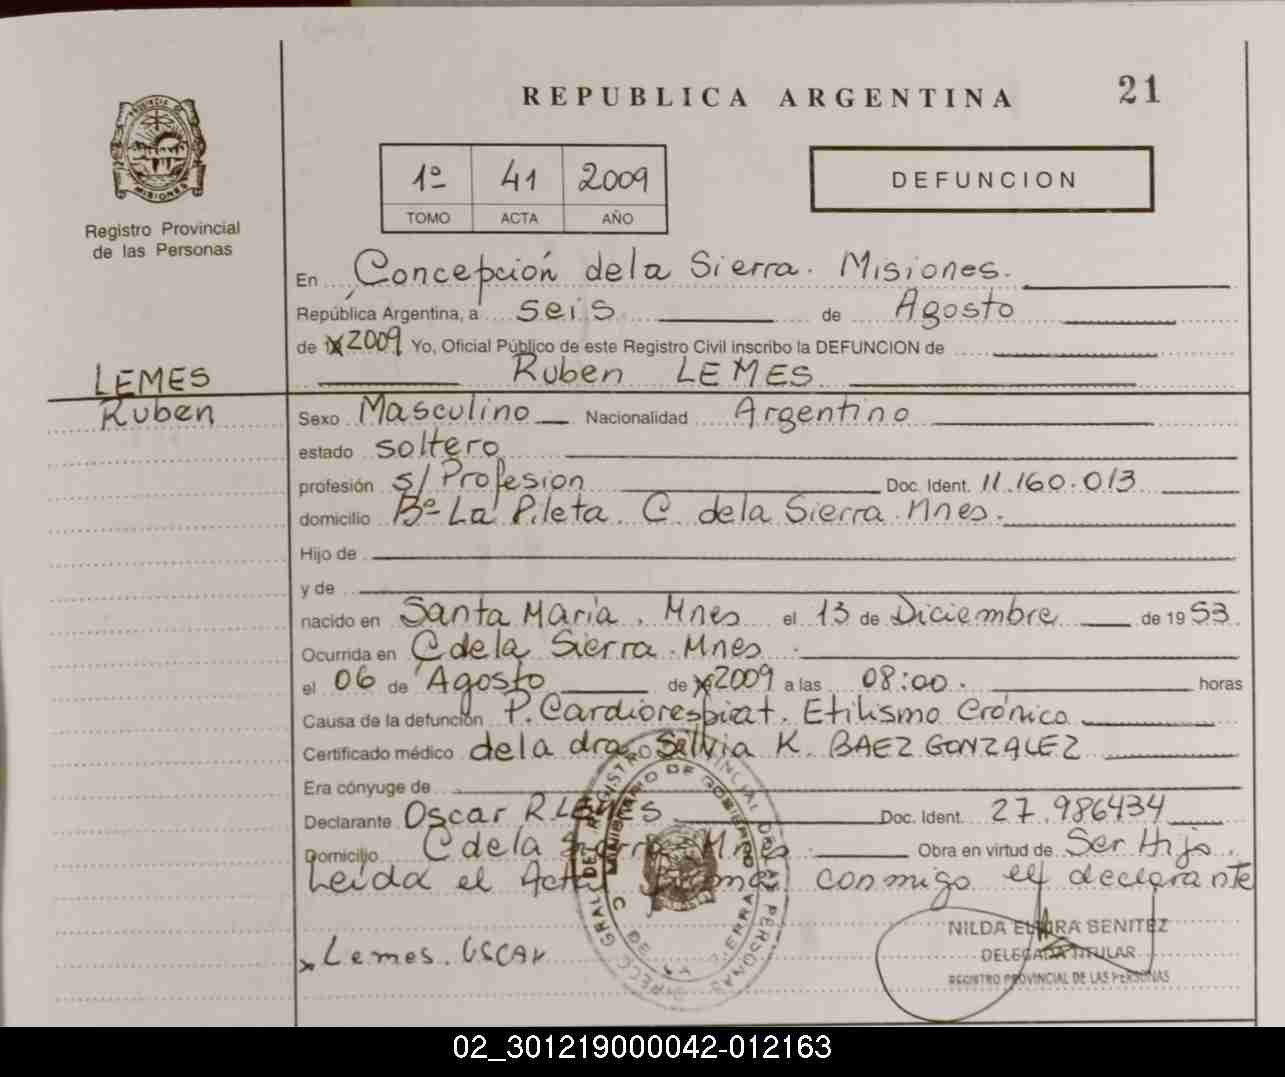 REPUBLICA ARGENTINA 21
PROVINCIA DE MISIONES
Registro Provincial
de las Personas
1º 41 2009
TOMO ACTA AÑO
DEFUNCION
En Concepción dela Sierra. Misiones.
República Argentina, a seis de Agosto
de 2009 Yo, Oficial Público de este Registro Civil inscribo la DEFUNCION de
Ruben LEMES
LEMES
Ruben
Sexo Masculino Nacionalidad Argentino
estado soltero
profesión s/ Profesion Doc. Ident. 11.160.013
domicilio Bº La Pileta. C. dela Sierra. Mnes.
Hijo de
y de
nacido en Santa Maria. Mnes el 13 de Diciembre de 1953
Ocurrida en C dela Sierra. Mnes
el 06 de Agosto de 2009 a las 08:00. horas
Causa de la defunción P. Cardiorespirat. Etilismo Crónico
Certificado médico dela dra. Silvia K. BAEZ GONZALEZ
Era cónyuge de
Declarante Oscar R. LEMES Doc. Ident. 27.986434
Domicilio C dela Sierra Mnes Obra en virtud de Ser Hijo.
Leida el Acta firma conmigo el declarante
x Lemes. OSCAR
NILDA ELVIRA BENITEZ
DELEGADA TITULAR
REGISTRO PROVINCIAL DE LAS PERSONAS
02_301219000042-012163